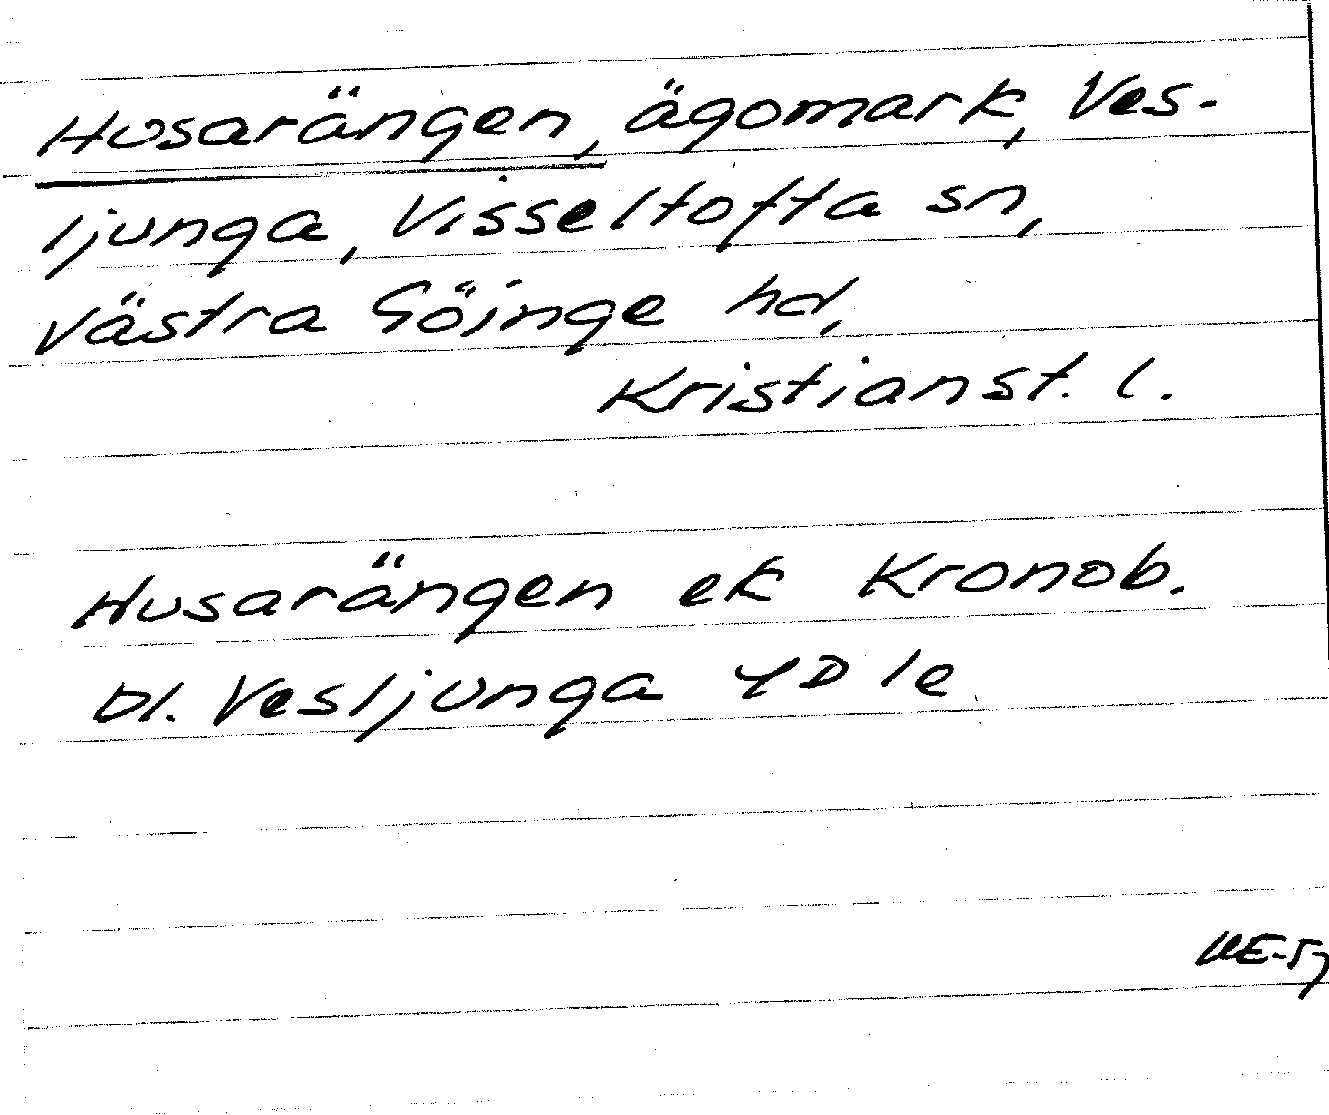 Husarängen, ägomark, Ves-
ljunga, Visseltofta sn,
västra Göinge hd,
Kristianst. l.
Husarängen ek Kronob.
Dl. Vesljunga 4D 1e